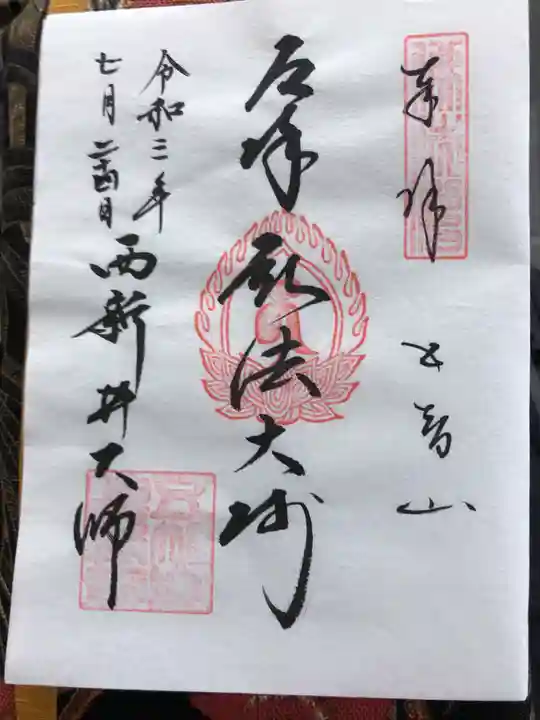 奉拝　五智山
厄除弘法大師
令和三年
七月二十四日
西新井大師